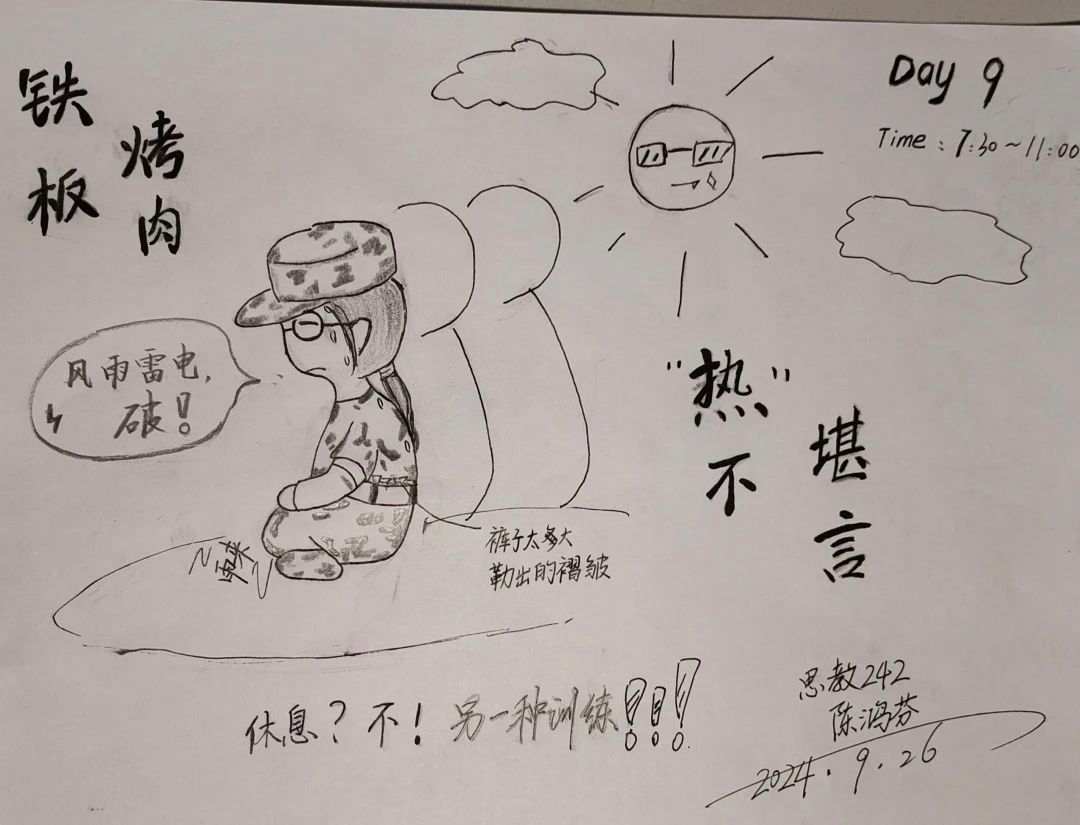 铁板
烤肉
Day 9
Time：7:30～11:00
风雨雷电，
破！
"热"不
堪言
裤子太多大
勒出的褶皱
休息？不！另一种训练！！！
思教242
陈鸿芬
2024.9.26